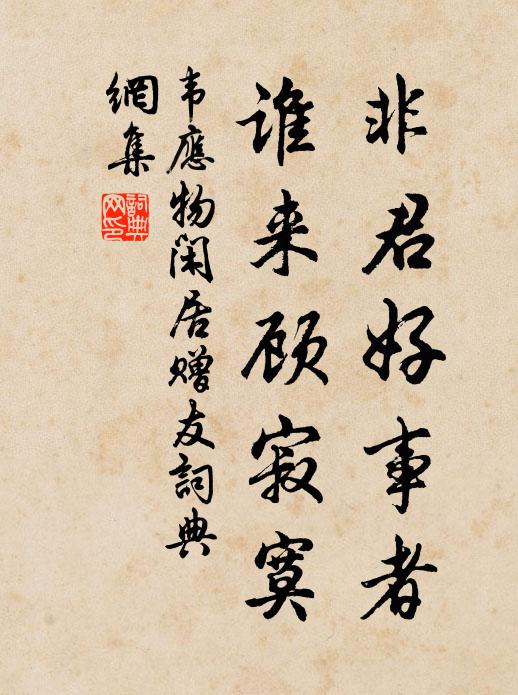 非君好事者
谁来顾寂寞
韦應物闲居赠友詞典
網集
詞典
网印